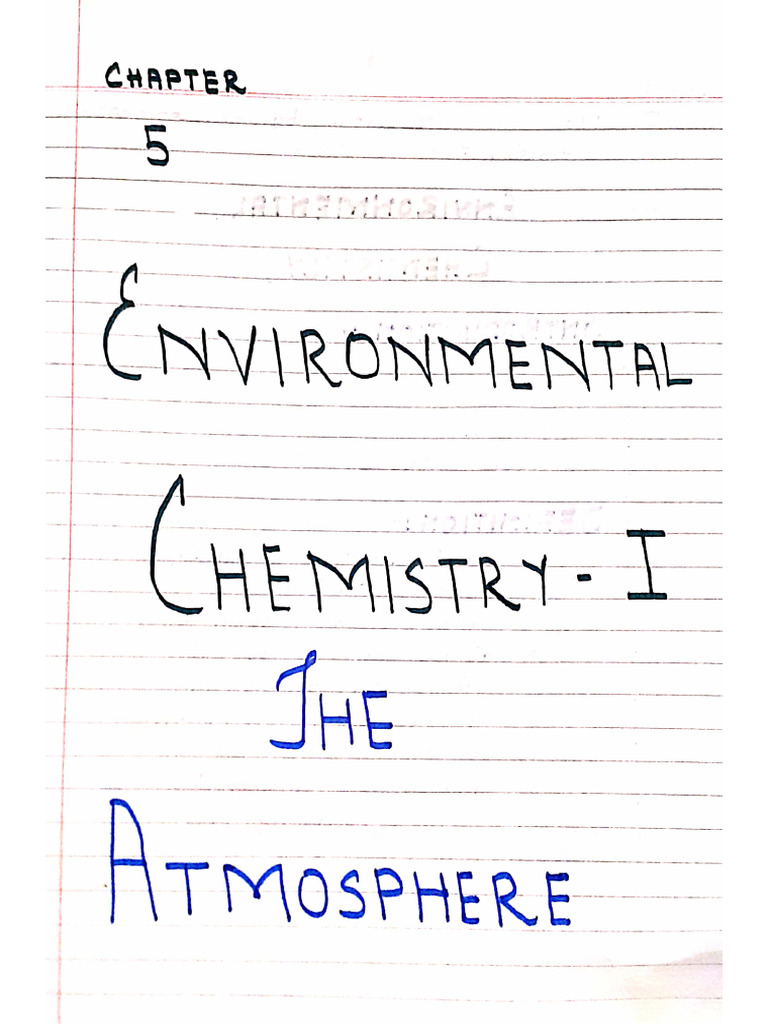 CHAPTER
5
ENVIRONMENTAL
CHEMISTRY - I
THE
ATMOSPHERE